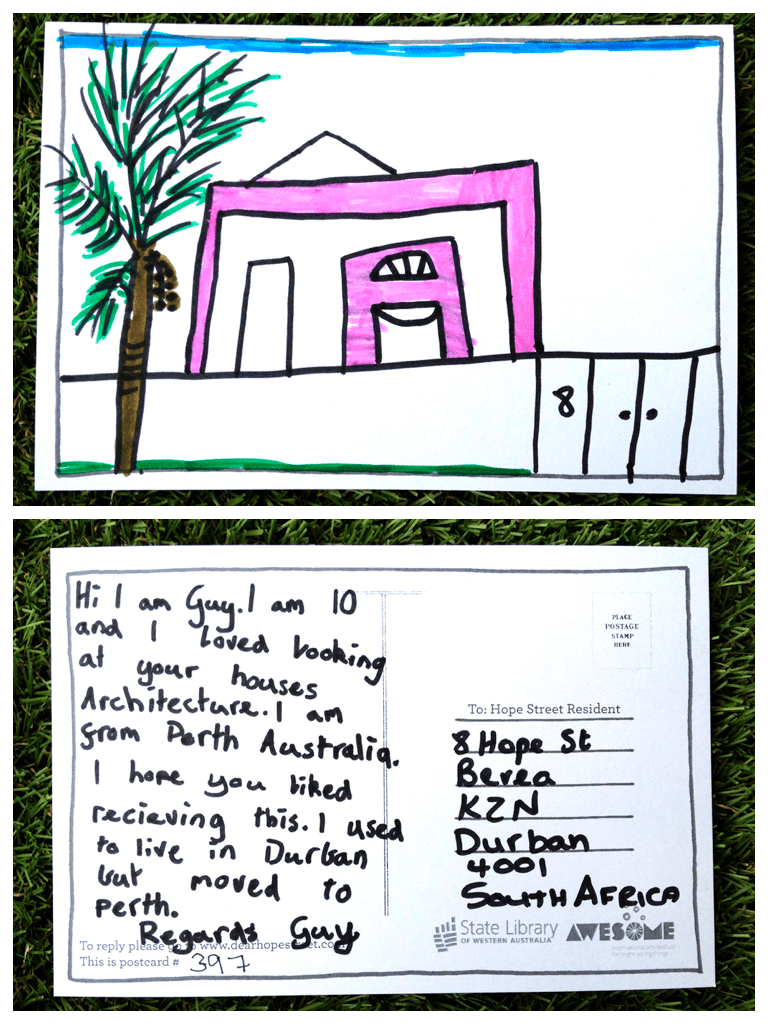 8
Hi I am Guy. I am 10
and I loved looking
at your houses
Architecture. I am
from Perth Australia.
I hope you liked
recieving this. I used
to live in Durban
but moved to
perth.
Regards Guy
To reply please go to www.dearhopestreet.com
This is postcard # 397
PLACE
POSTAGE
STAMP
HERE
To: Hope Street Resident
8 Hope St
Berea
KZN
Durban
4001
SOUTH AFRICA
State Library
OF WESTERN AUSTRALIA
AWESOME